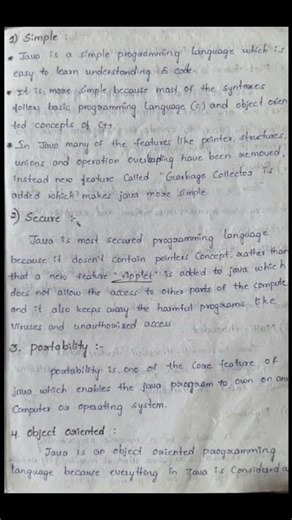 1) Simple :
* Java is a simple programming language which is
easy to learn understanding & code.
* It is more simple because most of the syntaxes
follow basic programming language (c) and object orien
ted concepts of C++
* In Java many of the features like pointer, structures,
unions and operation overloping have been removed,
Instead new feature called "Garbage Collector" is
added which makes java more simple.
2) Secure :-
Java is most secured programming language
because it doesn't contain pointers concept, rather than
that a new feature "Applet" is added to java which
does not allow the access to other parts of the compute
and it also keeps away the harmful programs like
Viruses and unauthorized access
3. Portability :-
portability is one of the core feature of
java which enables the java program to own on any
Computer or operating system.
4. Object Oriented :
Java is an object oriented programming
language because everything in Java is Considered a